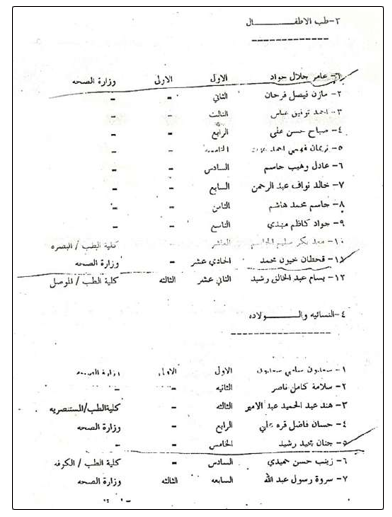 ٣- طب الاطفـــــال
١- عامر جلال جواد الاول الاولى وزارة الصحه
٢- مازن فيصل فرحان الثاني = =
٣- احمد توفيق عباس الثالث = =
٤- صباح حسن علي الرابع = =
٥- نريمان فهمي احمد الخامسه = =
٦- عادل وهيب جاسم السادس = =
٧- خالد نواف عبد الرحمن السابع = =
٨- جاسم محمد هاشم الثامن = =
٩- جواد كاظم مهدي التاسع = =
١٠- سعد بكر سليم العاشر = كلية الطب / البصره
١١- قحطان خيون محمد الحادي عشر = وزارة الصحه
١٢- بسام عبد الخالق رشيد الثاني عشر الثالثه كلية الطب / الموصل
٤- النسائيه والـــــولاده
١- سعدون سامي سعدون الاول الاولى وزارة الصحه
٢- سلامة كامل ناصر الثانيه = =
٣- هند عبد الحميد عبد الامير الثالثه = كلية الطب/المستنصريه
٤- حسان فاضل قره الرابع = وزارة الصحه
٥- جنان مجيد رشيد الخامس = =
٦- زينب حسن حميدي السادس = كلية الطب / الكوفه
٧- سروة رسول عبد الله السابعه الثالثه وزارة الصحه